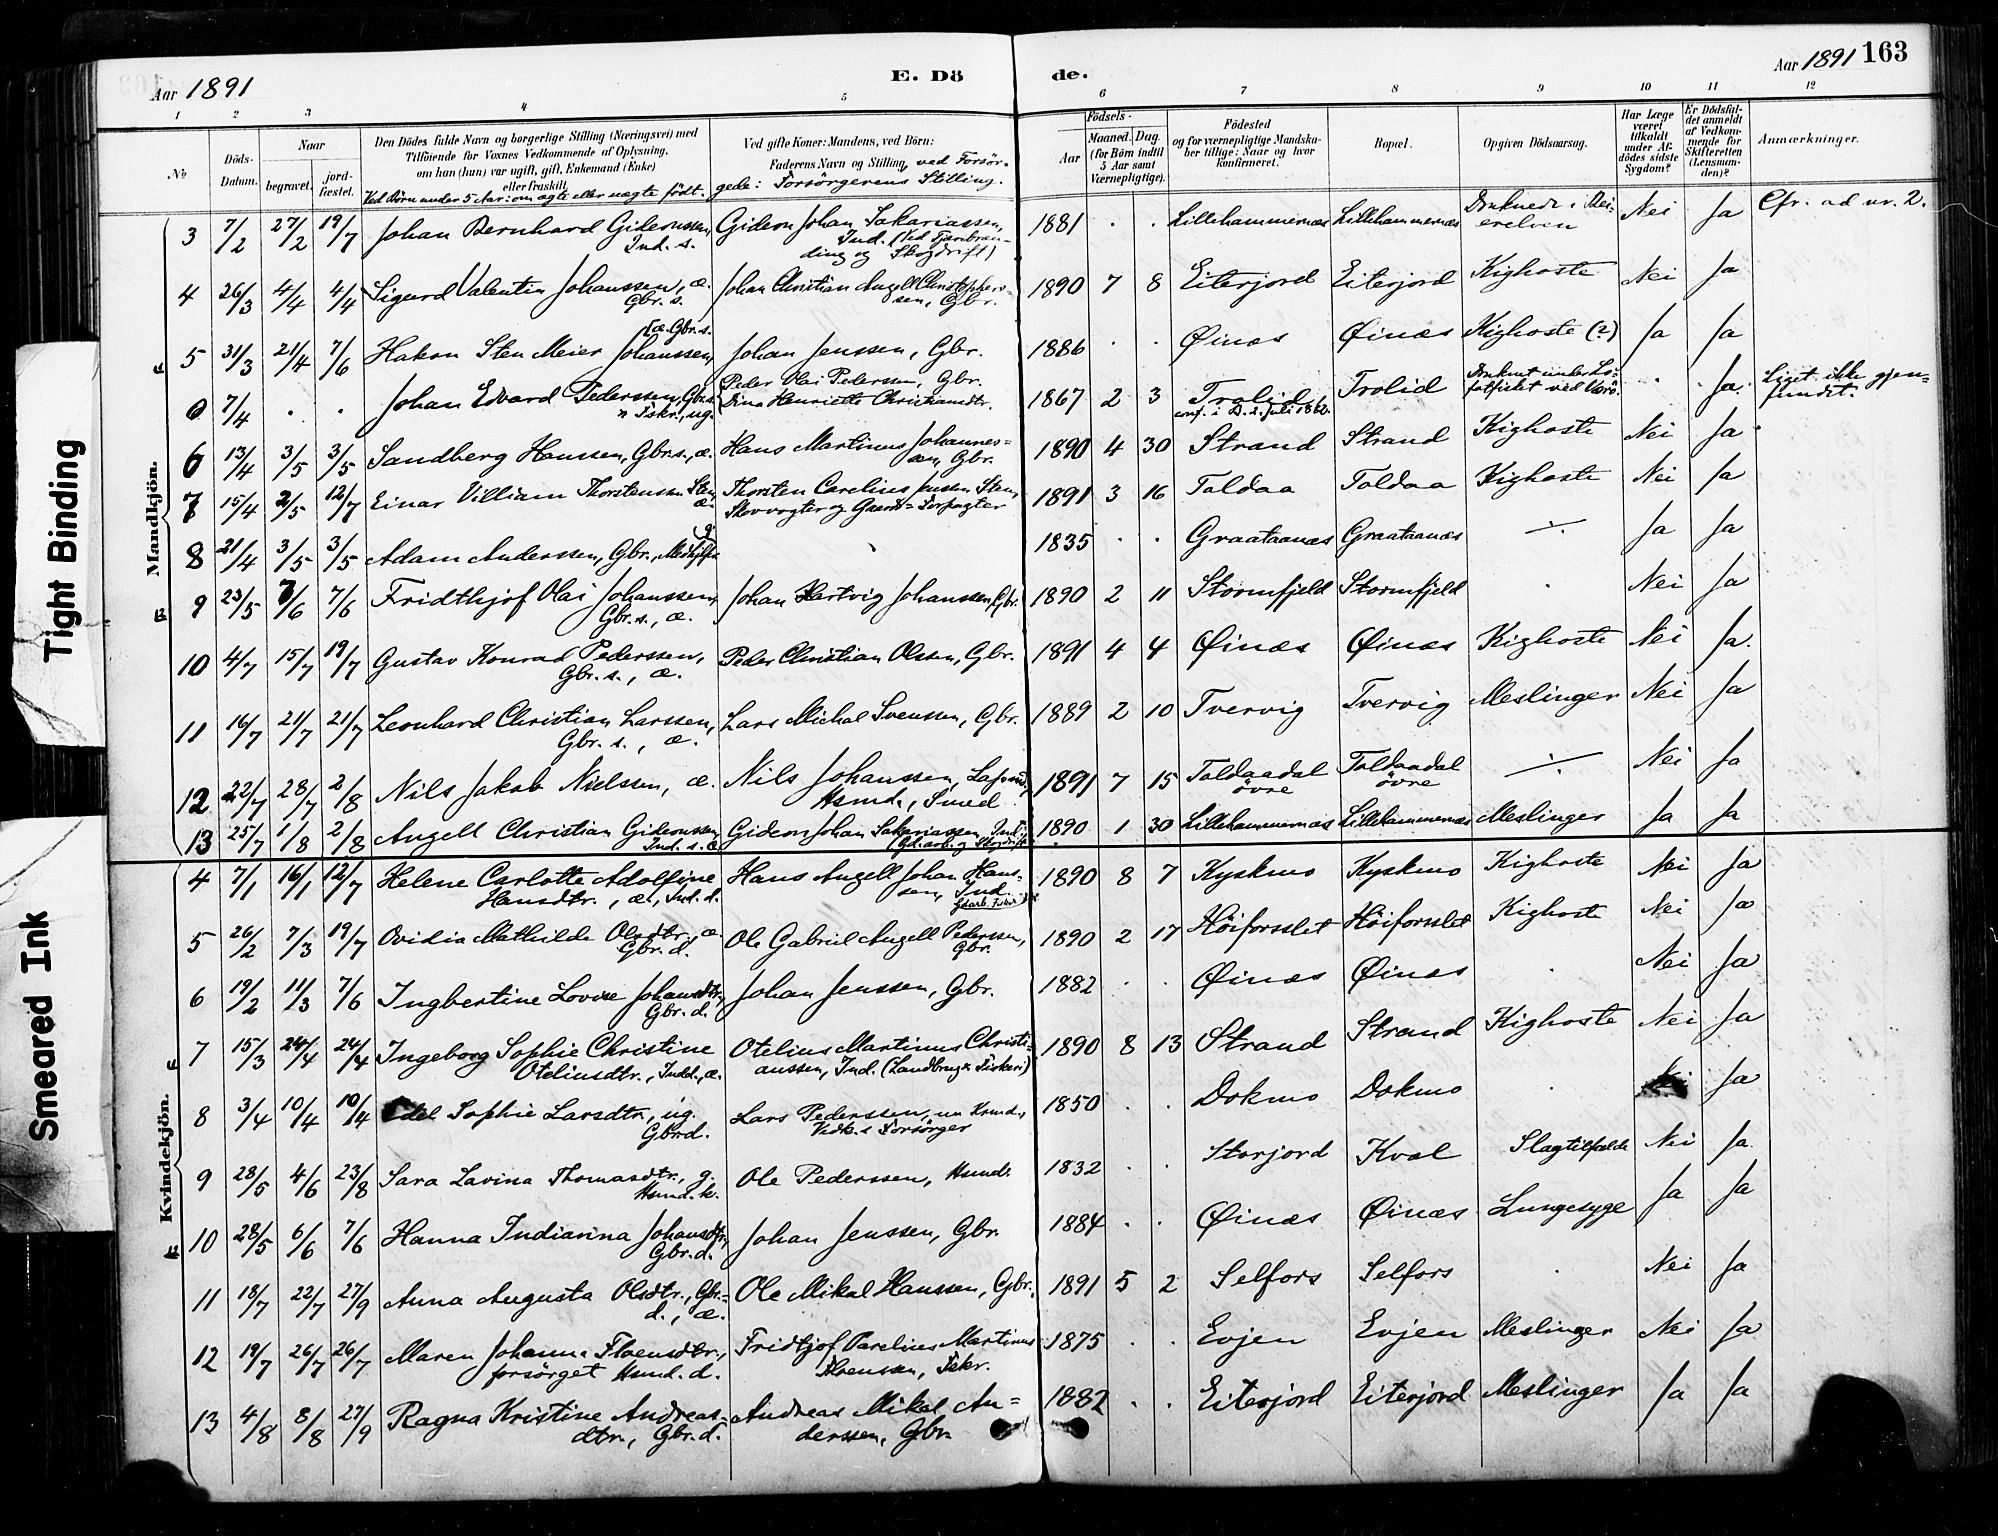 Tight Binding
Smeared Ink
Aar 1891
E. Dö
de.
Aar 1891 163
1 2 3 4 5 6 7 8 9 10 11 12
No
Döds-Datum.
Naar
begravet.
jord-fæstet.
Den Dödes fulde Navn og borgerlige Stilling (Næringsvei) med
Tilföiende for Voxnes Vedkommende af Oplysning,
om han (hun) var ugift, gift, Enkemand (Enke)
eller fraskilt.
Ved Börn under 5 Aar: om ægte eller uægte födt.
Ved gifte Koner: Mandens, ved Börn:
Faderens Navn og Stilling, ved Forsör-
gede: Forsörgerens Stilling.
Födsels-
Aar
Maaned. Dag.
(for Börn indtil
5 Aar samt
Værnepligtige).
Födested
og for værnepligtige Mandska-
ber tillige: Naar og hvor
konfirmeret.
Bopæl.
Opgiven Dödsaarsag.
Har Læge
været
tilkaldt
under Af-
dödes sidste
Sygdom?
Er Dödsfal-
det anmeldt
af Vedkom-
mende for
Skifteretten
(Lensman-
den)?
Anmærkninger.
Mandkjön.
3 7/2 27/2 19/7 Johan Bernhard Gideonssen, Ind. s. Gideon Johan Sakariassen, Ind. (Ved Tjærebrænding og Skogdrift) 1881 . . Lillehammernæs Lillehammernæs Druknede i elven Nei Ja Cfr. ad nr. 2.
4 26/3 4/4 4/4 Sigurd Valentin Johanssen, æ. Gbr. s. Johan Christian Angell Christophersen, Gbr. 1890 7 8 Eiterjord Eiterjord Kighoste Nei Ja
5 31/3 21/4 7/6 Hakon Sten Meier Johanssen, [æ. Gbr. s. Johan Jenssen, Gbr. 1886 . . Øinæs Øinæs Kighoste (?) Ja Ja
0 7/4 . . Johan Edvard Pederssen, Gbr.s. Fskr., ug. Peder Olai Pederssen, Gbr. Dina Henriette Christiansdtr. 1867 2 3 Trolid Trolid Druknet under Lofotfisket ved Værö . Ja. Liget ikke gjenfundet.
6 13/4 3/5 3/5 Sandberg Hanssen, Gbr.s., æ. Hans Martinus Johannessen, Gbr. 1890 4 30 Strand Strand Kighoste Nei Ja
7 15/4 2/5 12/7 Einar Villiam Thorstenssen Sten, æ. Thorsten Carelius Jenssen Sten, Skovvogter og Gaard-Forpagter 1891 3 16 Toldaa Toldaa Kighoste Nei Ja
8 21/4 3/5 3/5 Adam Anderssen, Gbr., g. 1835 . . Graataanæs Graataanæs ÷ Ja Ja
9 23/5 7/6 7/6 Fridthjof Olai Johanssen, Gbr. s., æ. Johan Hartvig Johanssen, Gbr. 1890 2 11 Stormfjeld Stormfjeld . Nei Ja
10 4/7 15/7 19/7 Gustav Konrad Pederssen, Gbr. s., æ. Peder Christian Olsen, Gbr. 1891 4 4 Øinæs Øinæs Kighoste Nei Ja.
11 16/7 21/7 21/7 Leonhard Christian Larssen, Gbr. s., æ. Lars Michal Svenssen, Gbr. 1889 2 10 Tvervig Tvervig Meslinger Nei Ja
12 22/7 28/7 2/8 Nils Jakob Nielssen, æ. Nils Johanssen, Hsmd., Smed 1891 7 15 Toldaadal övre Toldaadal övre ÷ Nei Ja
13 25/7 1/8 2/8 Angell Christian Gideonssen, Ind. s. æ Gideon Johan Sakariassen, Ind. 1890 1 30 Lillehammernæs Lillehammernæs Meslinger Ja Ja
Kvindekjön.
4 7/1 16/1 12/7 Helene Carlotte Adolfine Hansdtr., æ., Ind. d. Hans Angell Johan Hanssen, Ind. 1890 8 7 Kyskmo Kyskmo Kighoste Nei Ja
5 26/2 7/3 19/7 Ovidia Mathilde Olsdtr., æ Gbr. d. Ole Gabriel Angell Pederssen, Gbr. 1890 2 17 Höiforsslet Höiforsslet Kighoste Nei Ja
6 19/2 11/3 7/6 Ingbertine Lovise Johansdtr., Gbr. d. Johan Jenssen, Gbr. 1882 . . Øinæs Øinæs . Nei Ja
7 15/3 24/4 24/4 Ingeborg Sophie Christine Oteliusdtr., Indd., æ. Otelius Martinus Christianssen, Ind. (Landbrug & Fiskeri) 1890 8 13 Strand Strand Kighoste Nei Ja
8 3/4 10/4 10/4 Edel Sophie Larsdtr., ug. Gbrd. Lars Pederssen, Vedk.s Forsörger 1850 . . Dokmo Dokmo . Nei Ja
9 28/5 4/6 23/8 Sara Lavina Thomasdtr., g. Hsmd. k. Ole Pederssen, Hsmd. 1832 . . Storjord Kval Slagtilfælde Nei Ja
10 28/5 6/6 7/6 Hanna Indianna Johansdtr., Gbr. d. Johan Jenssen, Gbr. 1884 . . Øinæs Øinæs Lungesyge Ja Ja
11 18/7 22/7 27/9 Anna Augusta Olsdtr., Gbr. d., æ. Ole Mikal Hanssen, Gbr. 1891 5 2 Selfors Selfors . Nei Ja
12 19/7 26/7 26/7 Maren Johanna Floensdtr., forsörget Hsmd. d. Fridtjof Parelius Martinus Floenssen, Fskr. 1875 . . Evjen Evjen Meslinger Nei Ja
13 4/8 8/8 27/9 Ragna Kristine Andreasdtr., Gbr. d. Andreas Mikal Anderssen, Gbr. 1882 . . Eiterjord Eiterjord Meslinger Ja Ja